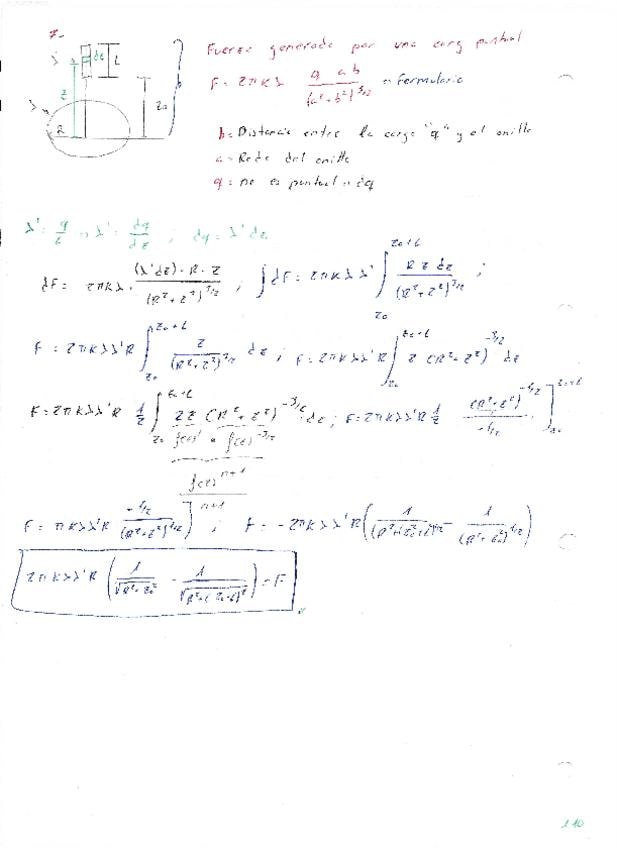 7-
λ'
dz
L
z
z₀
λ
R
Fuerza generada por una carg puntual
F = 2πKλ q a b / (a² + b²)^3/2 → Formulario
b = Distancia entre la carga "q" y el anillo
a = del anillo
q = no es puntual → dq
λ' = q/L → λ' = dq/dz ; dq = λ' dz
dF = 2πKλ · (λ'dz) · R · z / (R² + z²)^3/2 ; ∫dF = 2πKλλ' ∫_{z₀}^{z₀+L} R z dz / (R² + z²)^3/2 ;
F = 2πKλλ'R ∫_{z₀}^{z₀+L} z / (R² + z²)^3/2 dz ; F = 2πKλλ'R ∫_{z₀}^{z₀+L} z (R² + z²)^-3/2 dz
F = 2πKλλ'R 1/2 ∫_{z₀}^{z₀+L} 2z (R² + z²)^-3/2 dz ; F = 2πKλλ'R 1/2 (R² + z²)^-1/2 / -1/2 ]_{z₀}^{z₀+L}
f(z)' · f(z)^-3/2
f(z)^n+1 / n+1
F = πKλλ'R -1/2 / (R² + z²)^1/2 ] ; F = -2πKλλ'R (1 / (R² + (z₀+L)²)^1/2 - 1 / (R² + z₀²)^1/2)
2πKλλ'R (1 / √R² + z₀² - 1 / √R² + (z₀+L)²) = F
110